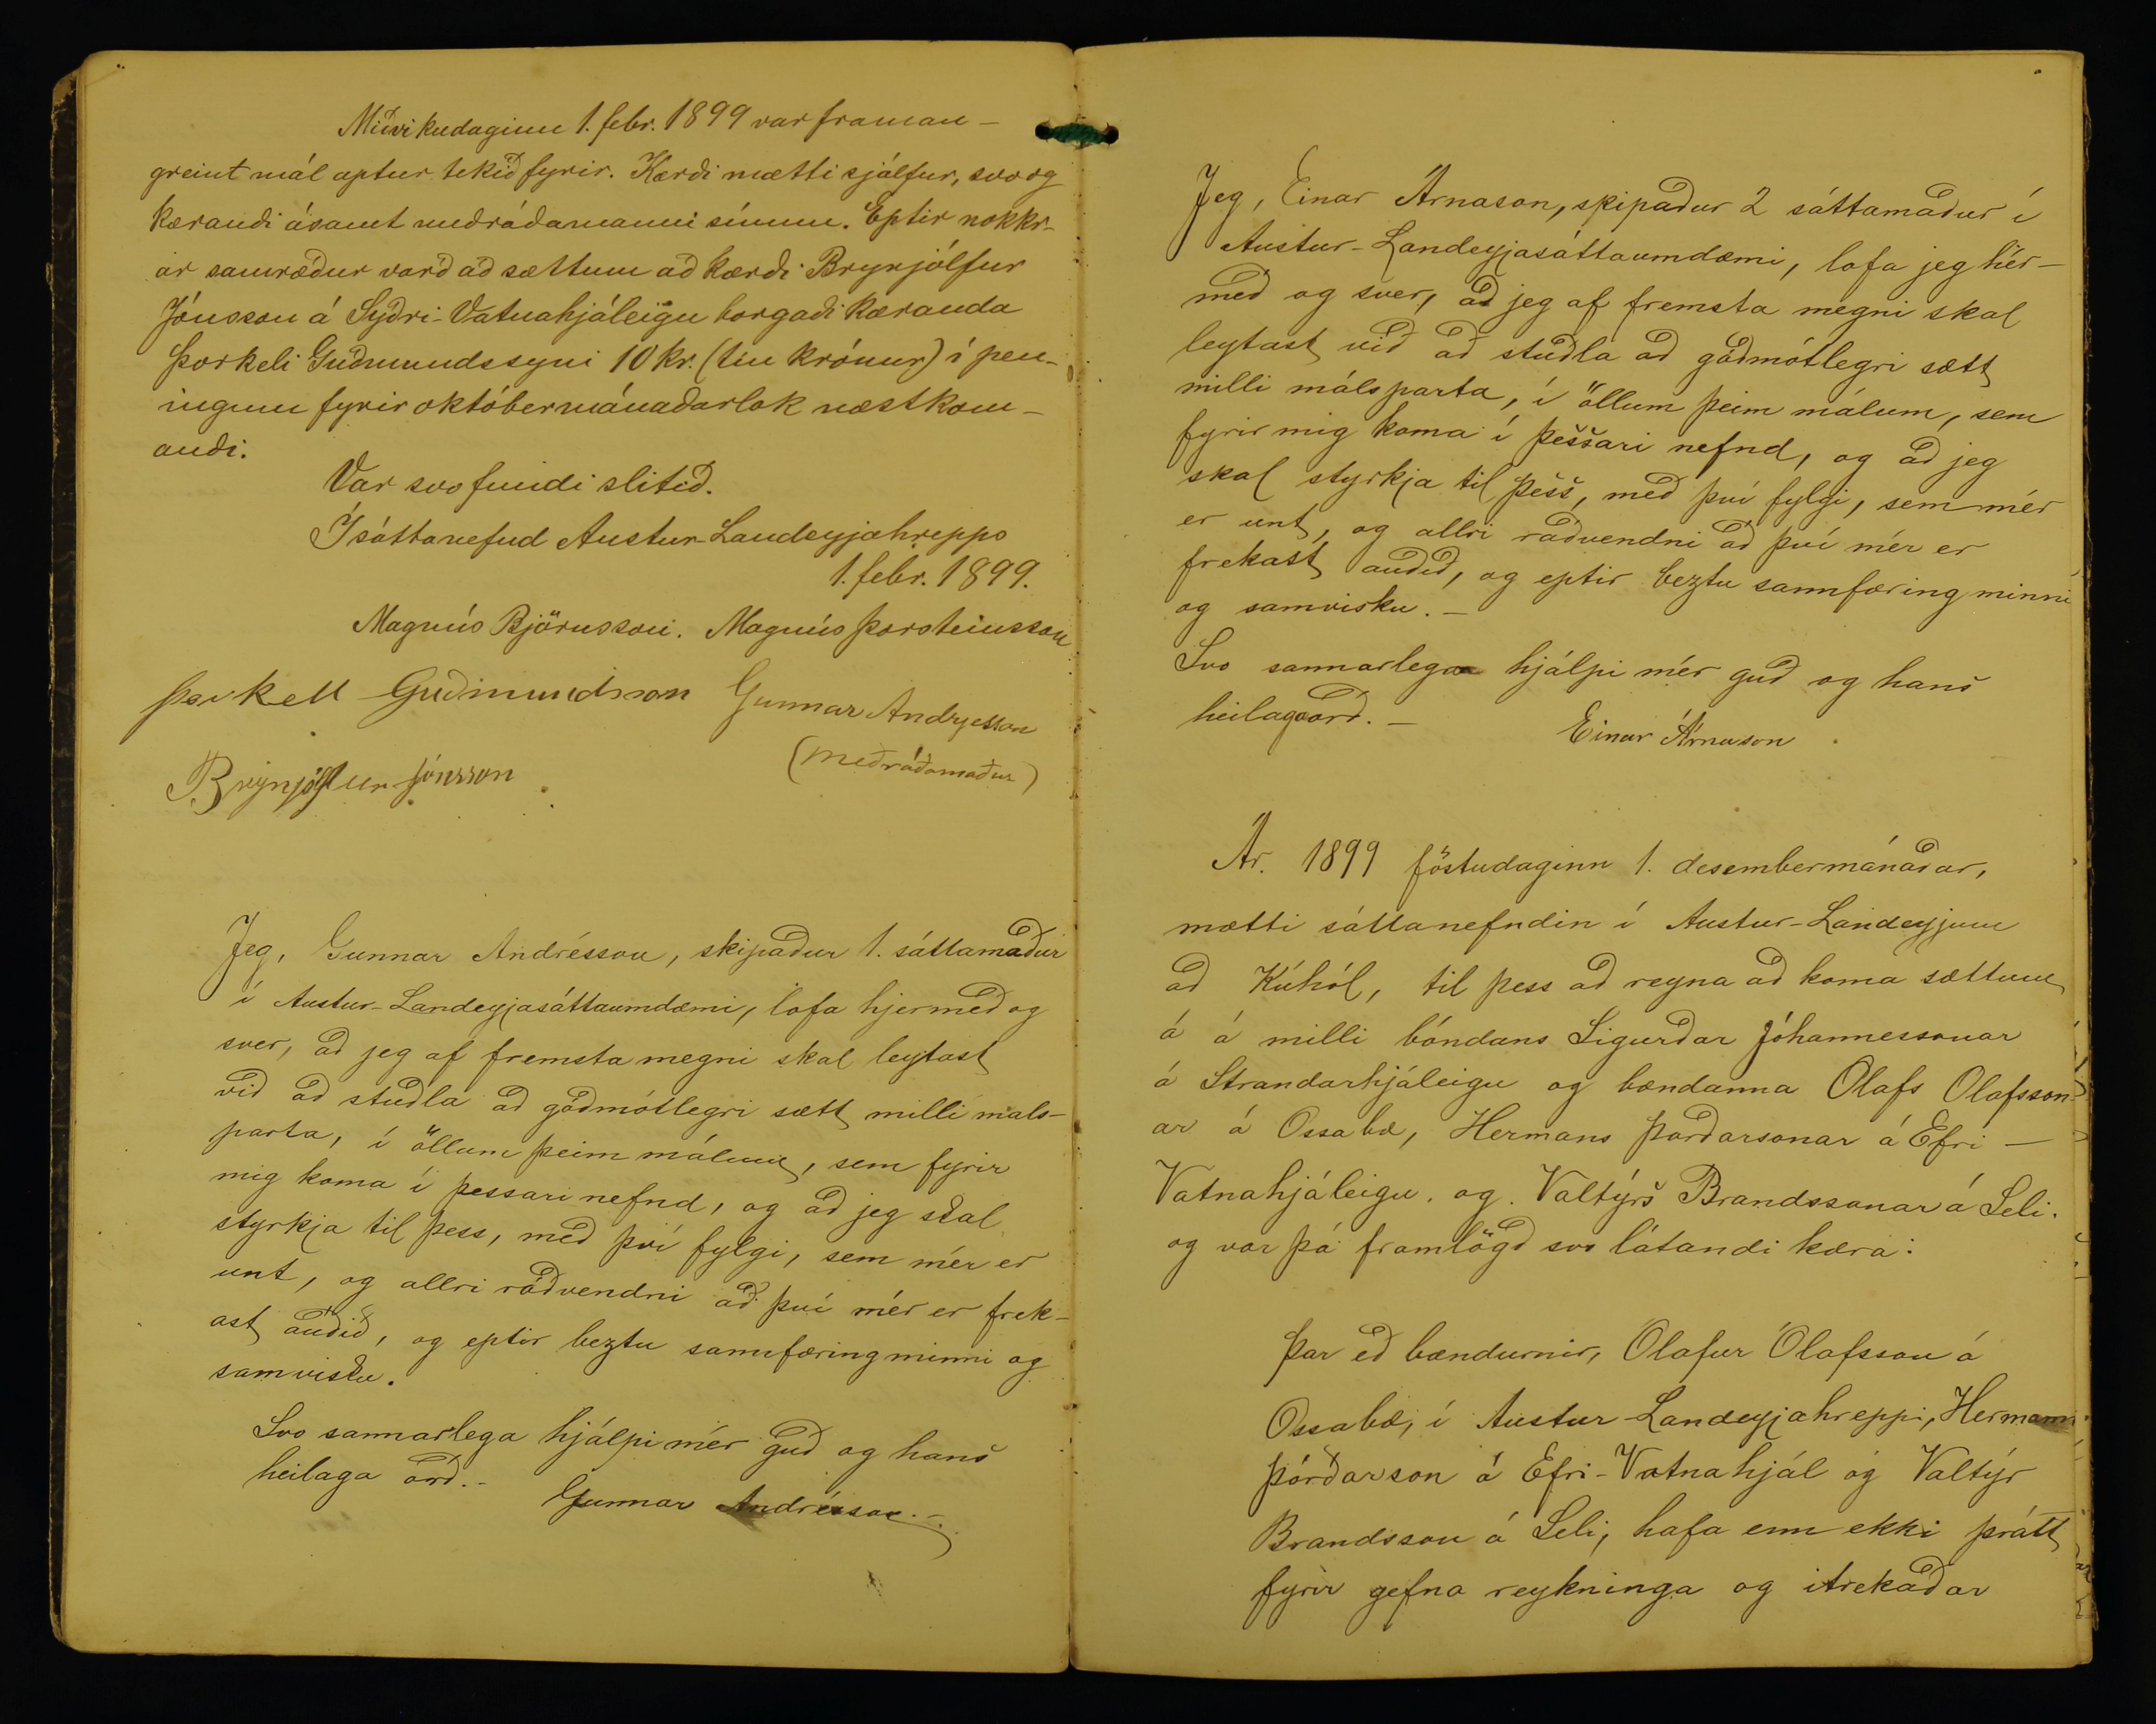 Miðvikudaginn 1. febr. 1899 var framan-
greint mál aptur tekið fyrir. Kærði mætti sjálfur, svo og
kærandi ásamt meðráðamanni sínum. Eptir nokkr-
ar samræður varð að sættum að kærði Brynjólfur
Jónsson á Syðri-Vatnahjáleigu borgaði kæranda
Þorkeli Guðmundssyni 10 kr. (tíu krónur) í pen-
ingum fyrir októbermánaðarlok næstkom-
andi.
Var svo fundi slitið.
Í sáttanefnd Austur-Landeyjahrepps
1. febr. 1899.
Magnús Björnsson. Magnús Þorsteinsson
Þorkell Guðmundsson Gunnar Andrjesson
(meðráðamaður)
Brynjólfur Jónsson
Jeg, Gunnar Andrésson, skipaður 1. sáttamaður
í Austur-Landeyjasáttaumdæmi, lofa hjermeð og
sver, að jeg af fremsta megni skal leytast
við að stuðla að góðmótlegri sætt milli mals-
parta, í öllum þeim málum, sem fyrir
mig koma í þessari nefnd, og að jeg skal
styrkja til þess, með því fylgi, sem mér er
unt, og allri ráðvendni að því mér er frek-
ast auðið, og eptir beztu sannfæring minni og
samvisku.
Svo sannarlega hjálpi mér guð og hans
heilaga orð.-
Gunnar Andrésson.-
Jeg, Einar Árnason, skipaður 2 sáttamaður í
Austur-Landeyjasáttaumdæmi, lofa jeg hér-
með og sver, að jeg af fremsta megni skal
leytast við að stuðla að góðmótlegri sætt
milli málsparta, í öllum þeim málum, sem
fyrir mig koma í þessari nefnd, og að jeg
skal styrkja til þess, með því fylgi, sem mér
er unt, og allri ráðvendni að því mér er
frekast auðið, og eptir beztu sannfæring minni
og samvisku.-
Svo sannarlega hjálpi mér guð og hans
heilaga orð.-
Einar Árnason
Ár. 1899 föstudaginn 1. desembermánaðar,
mætti sáttanefndin í Austur-Landeyjum
að Kúhól, til þess að reyna að koma sættum
á á milli bóndans Sigurðar Jóhannessonar
á Strandarhjáleigu og bændanna Olafs Olafsson-
ar á Ossabæ, Hermans Þorðarsonar á Efri-
Vatnahjáleigu. og. Valtýrs Brandssonar á Seli.
og var þá framlögð svo látandi kæra:
Þar eð bændurnir, Ólafur Ólafsson á
Ossabæ, í Austur-Landeyjahreppi, Hermann
Þórðarson á Efri-Vatnahjál og Valtýr
Brandsson á Seli, hafa enn ekki þrátt
fyrir gefna reykninga og itrekaðar